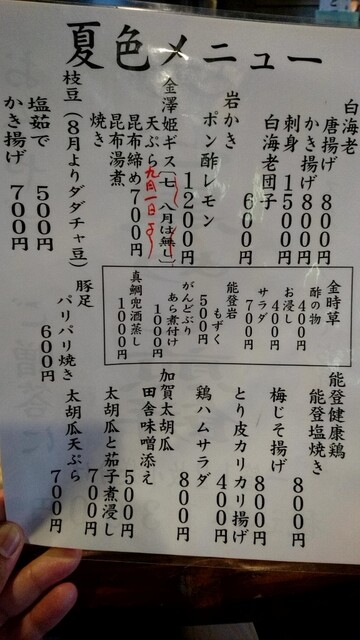 夏色メニュー
白海老
唐揚げ 800円
かき揚げ 800円
刺身 1500円
白海老団子
600円
岩かき
ポン酢レモン
1200円
金澤姫ギス〔七、八月は無し〕
九月一日より
天ぷら
昆布締め 700円
昆布湯煮
焼き
枝豆(8月よりダダチャ豆)
塩茹で 500円
かき揚げ 700円
金時草
酢の物 400円
お浸し 400円
サラダ 700円
能登岩もずく
500円
がんどぶり
あら煮付け
1000円
真鯛兜酒蒸し
1000円
豚足
パリパリ焼き
600円
能登健康鶏
能登塩焼き
800円
梅じそ揚げ
800円
とり皮カリカリ揚げ
400円
鶏ハムサラダ
800円
加賀太胡瓜
田舎味噌添え
500円
太胡瓜と茄子煮浸し
700円
太胡瓜天ぷら
700円